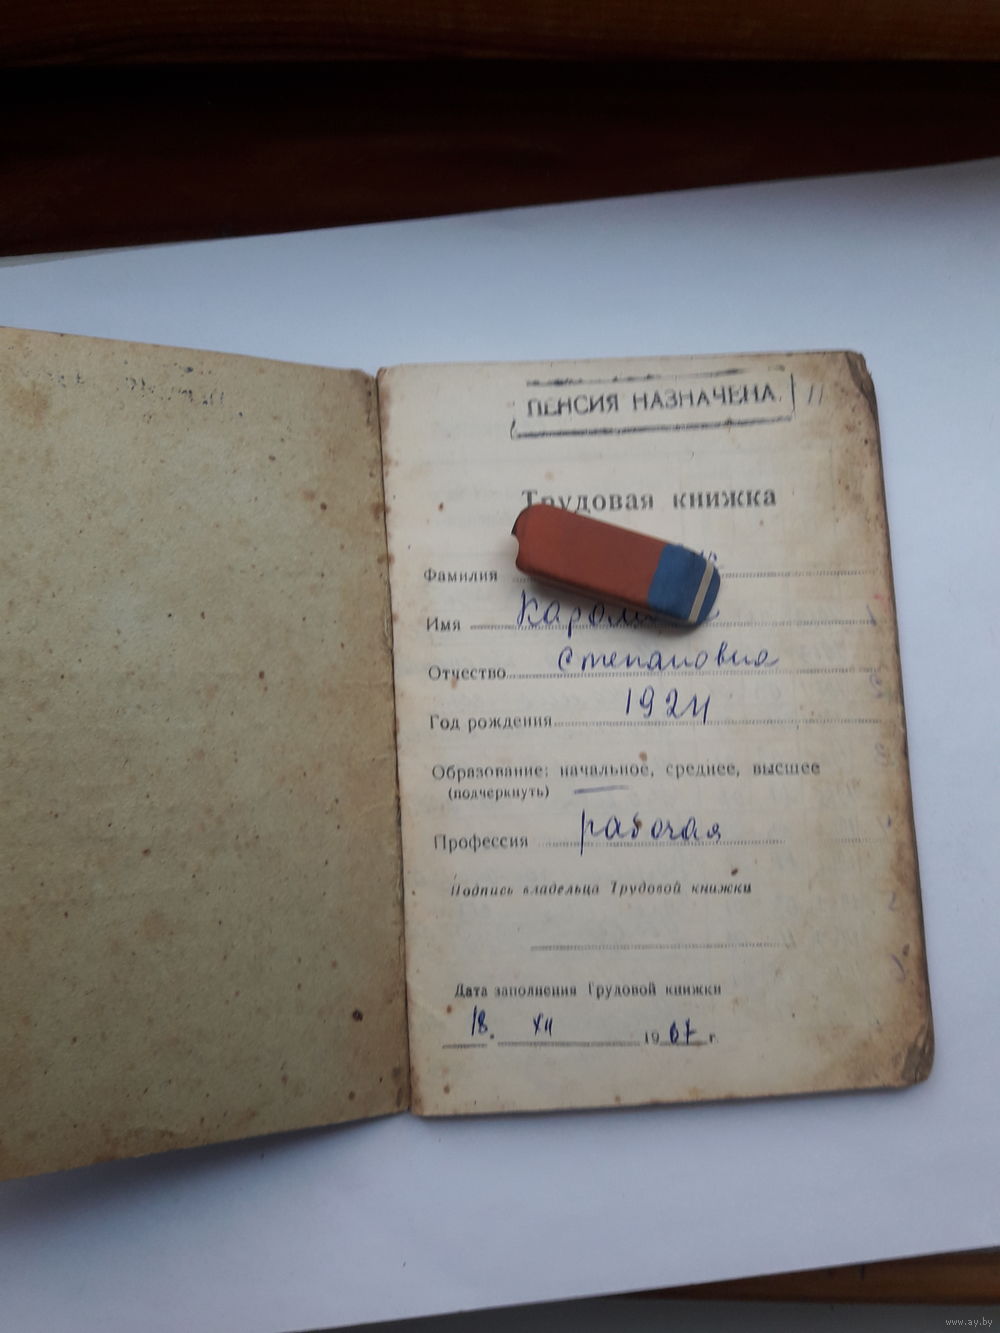 ПЕНСИЯ НАЗНАЧЕНА
Трудовая книжка
Фамилия
Имя
Отчество Степановна
Год рождения 1924
Образование: начальное, среднее, высшее
(подчеркнуть)
Профессия рабочая
Подпись владельца Трудовой книжки
Дата заполнения Трудовой книжки
18. XII 1967 г.
www.ay.by